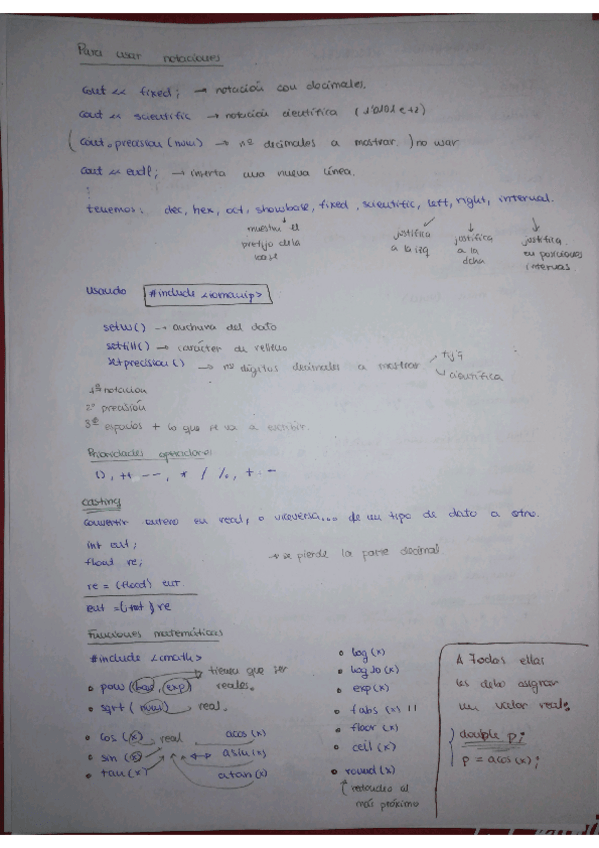 Para usar notaciones
cout << fixed; → notación con decimales.
cout << scientific → notación científica (1'0101 e+2)
(cout.precision (num) → nº decimales a mostrar.) no usar
cout << endl; → inserta una nueva línea.
tenemos: dec, hex, oct, showbase, fixed, scientific, left, right, internal.
muestra el
prefijo de la
base
justifica
a la izq
justifica
a la
dcha
justifica
en posiciones
internas.
Usando #include <iomanip>
setw() → anchura del dato
setfill() → carácter de relleno
setprecision() → nº dígitos decimales a mostrar
fija
científica
1º notación
2º precisión
3º espacios + lo que se va a escribir.
Prioridades operadores
(), ++ --, * / %, + -
Casting
Convertir entero en real, o viceversa... de un tipo de dato a otro.
int ent;
float re;
→ se pierde la parte decimal.
re = (float) ent
ent = (int) re
Funciones matemáticas
#include <cmath>
• pow (bas, exp) tienen que ser
reales.
• sqrt (num) real.
• cos (x) real
• sin (x)
• tan (x)
acos (x)
asin (x)
atan (x)
• log (x)
• log10 (x)
• exp (x)
• fabs (x) ||
• floor (x)
• ceil (x)
• round (x)
redondeo al
más próximo
A Todas ellas
les debo asignar
un valor real:
double p;
p = acos (x);